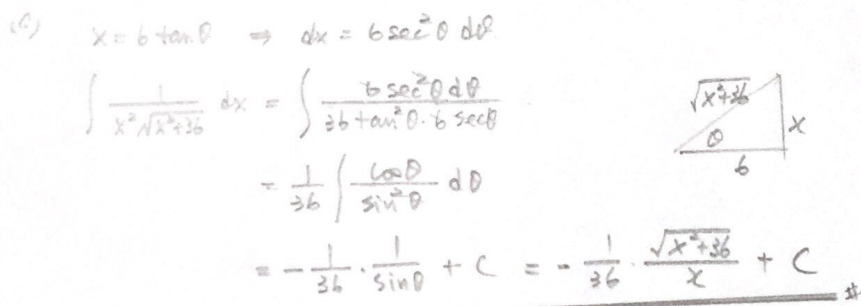 (c) x = 6 tan θ ⇒ dx = 6 sec² θ dθ
∫ 1/(x²√(x²+36)) dx = ∫ (6 sec² θ dθ)/(36 tan² θ · 6 sec θ)
= 1/36 ∫ cos θ/sin² θ dθ
= − 1/36 · 1/sin θ + C = − 1/36 · √(x²+36)/x + C #
√(x²+36)
x
θ
6